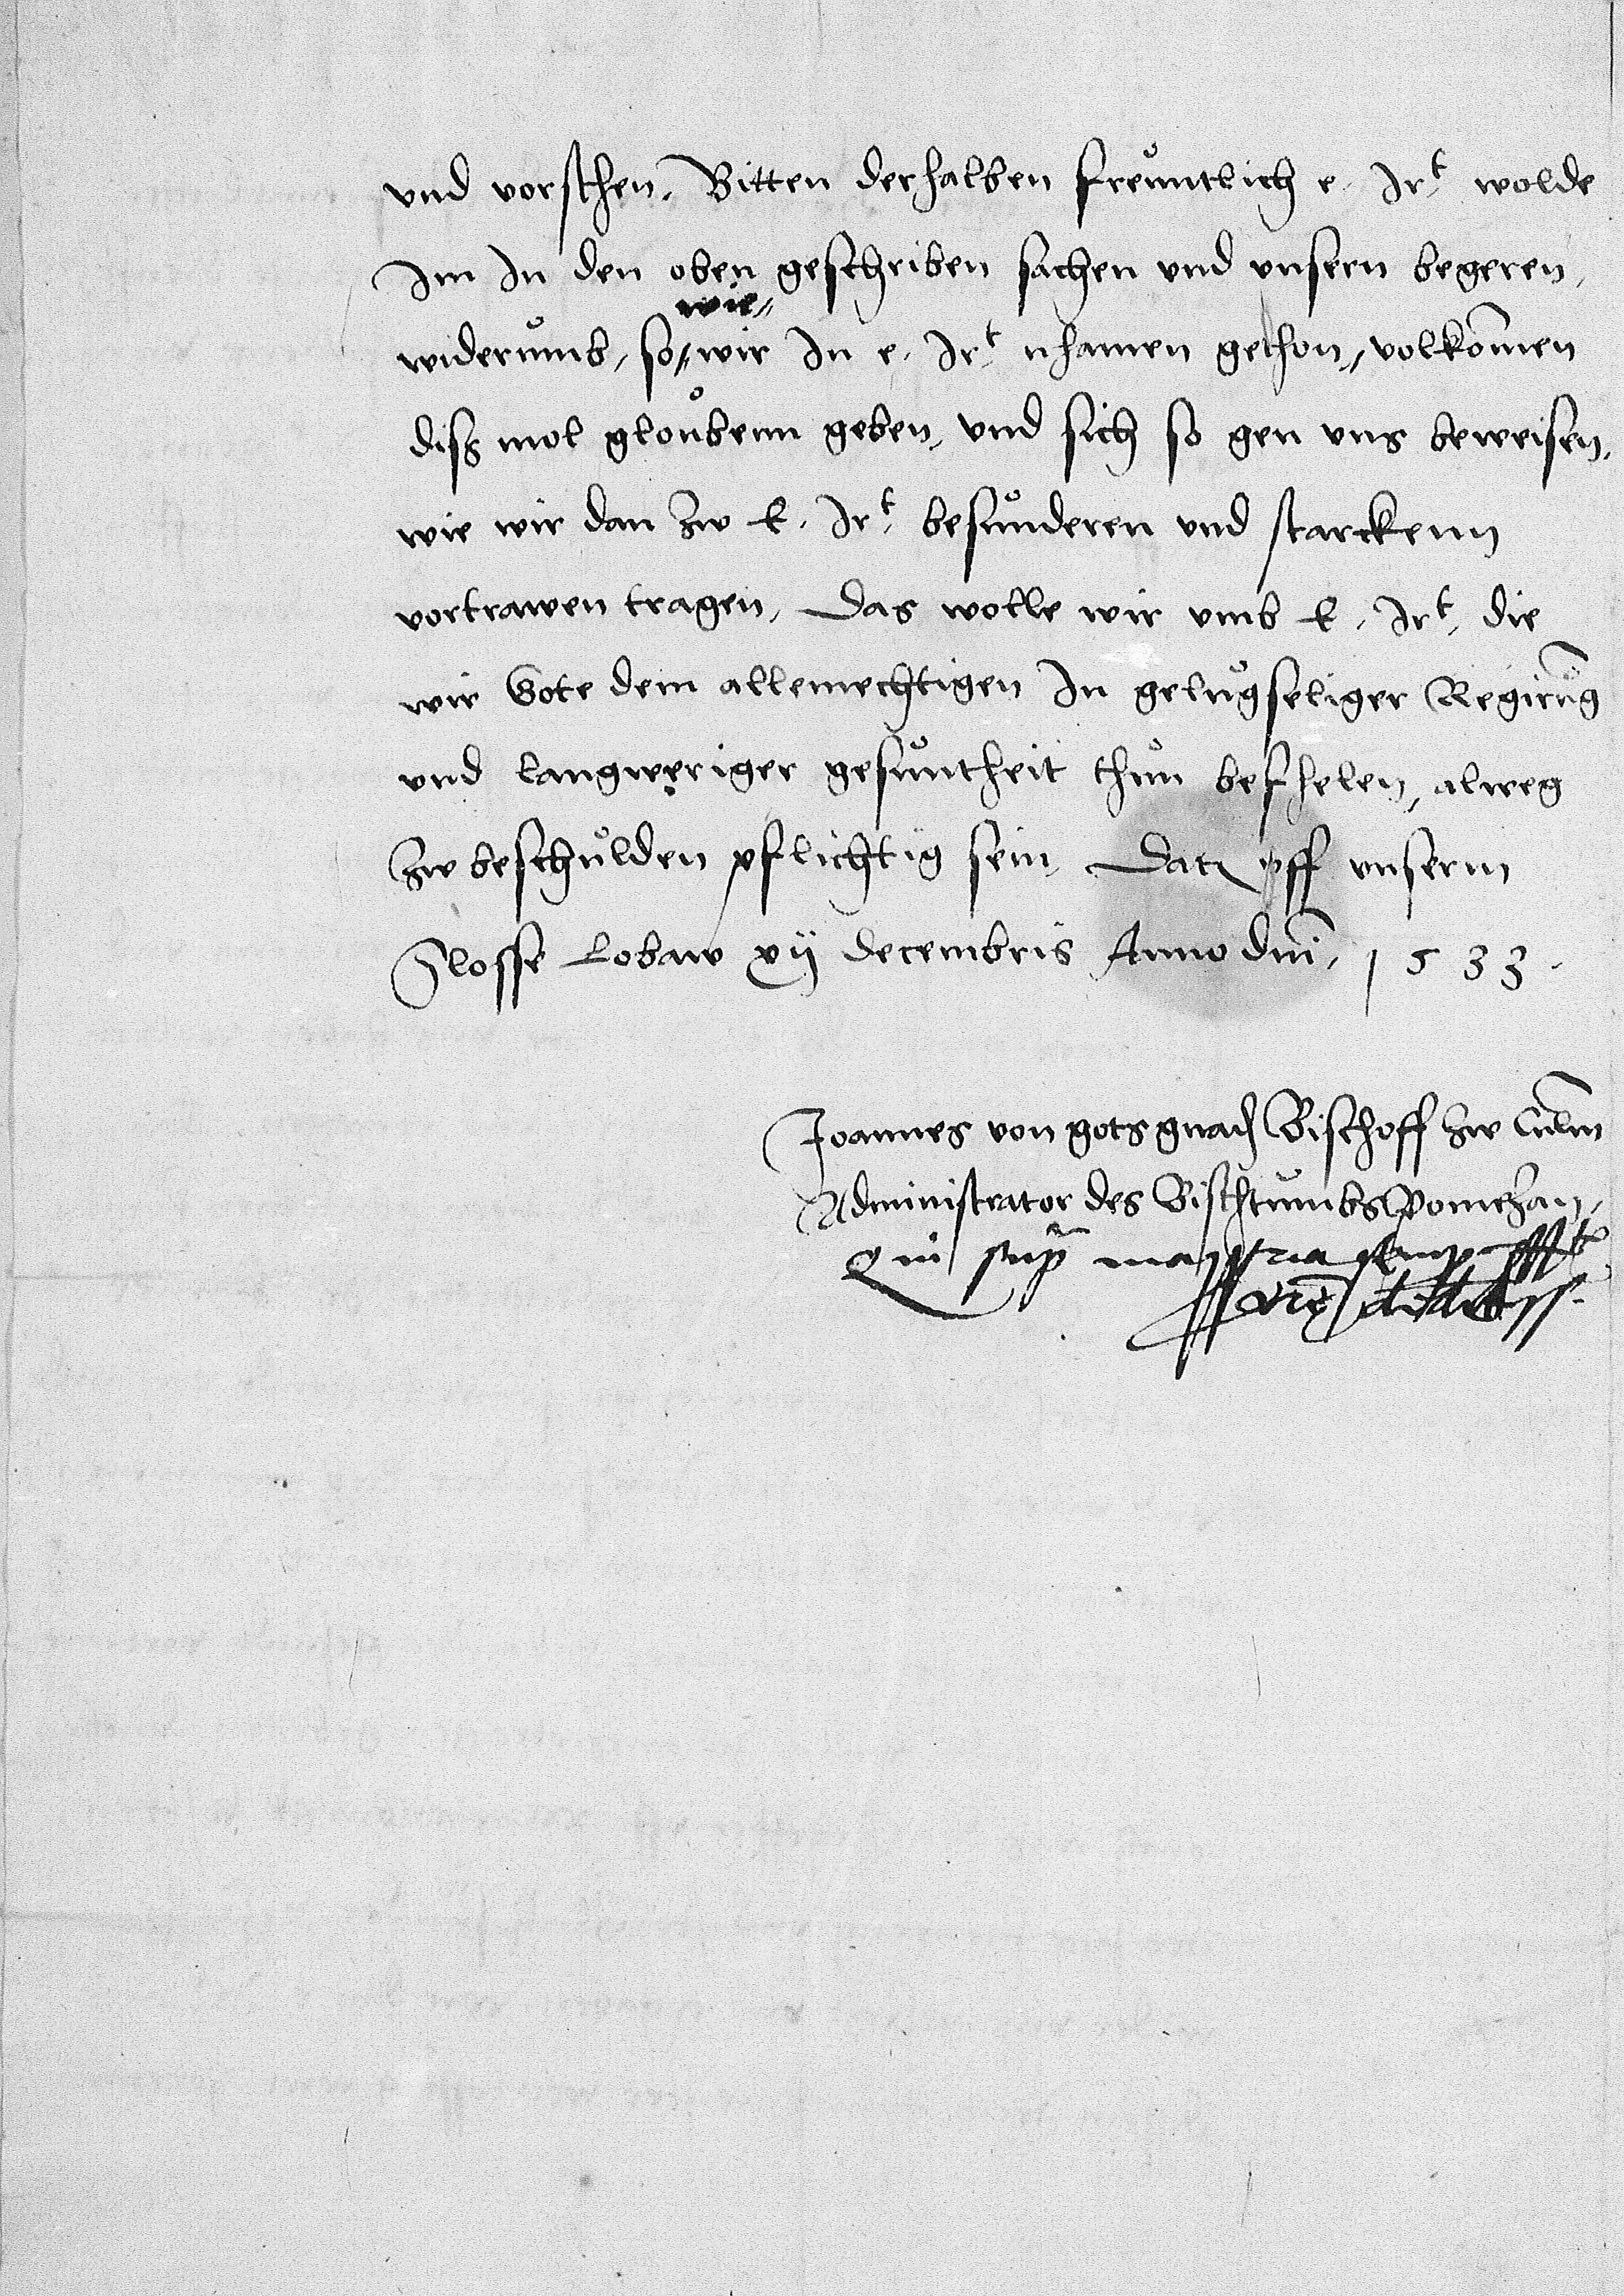 und vorsehen. Bitten derhalben freůntlich e. Irt. wolde
Im In den oben geschriben sachen und unsern begeren,
wie
widerůmb, so wir In e. Irt. nhamen gethon, volkom̄en
diss mol gloůbenn geben, und sich so gen uns beweisen,
wie wir dan zw E. Irt. besůnderen und starckenn
vortrawen tragen. Das wolle wir umb E. Irt. die
wir Gote dem allemechtigen In gelůgseliger Regirůng
und langweriger gesůntheit thůn befhelen, alweg
zw beschůlden pflichtig sein. Dat. uff unserm
Slosse Lobaw xij decembris Anno dni. 1533.
Joannes von gots gnad. Bischoff zw Culm
Administrator des Bischtůmbs Pomezan.